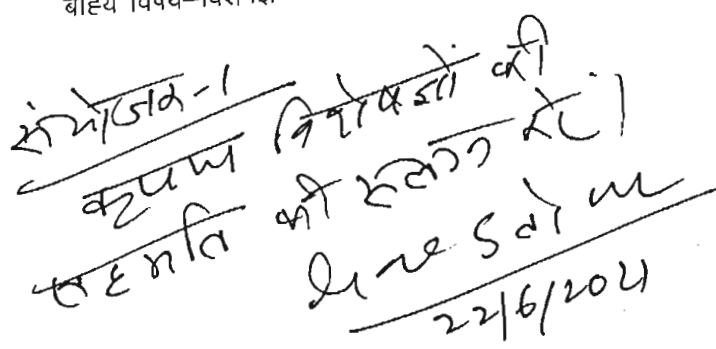 बाह्य विषय-विशेषज्ञ
संयोजक-1
कृपया विशेषज्ञों की
सहमति की संलग्न करें।
22/6/2021